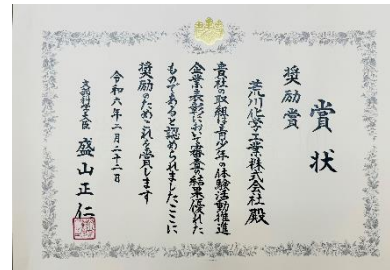 賞状
奨励賞
荒川化学工業株式会社殿
貴社の取組は青少年の体験活動推進
企業表彰において審査の結果優れた
ものであると認められましたここに
奨励のためこれを賞します
令和六年二月二十二日
文部科学大臣 盛山正仁